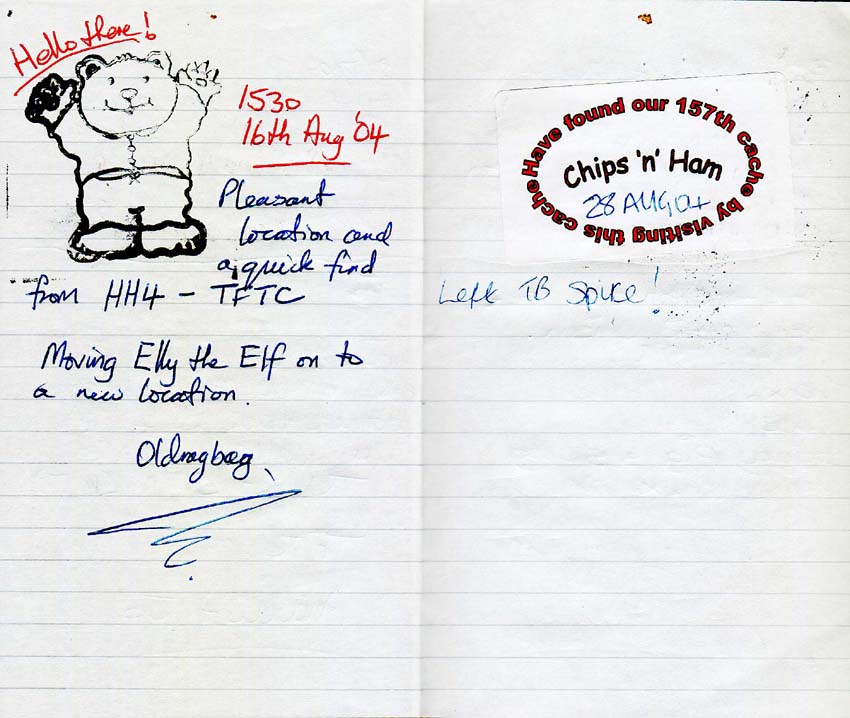 Hello there!
1530
16th Aug '04
Pleasant
location and
a quick find
from HH4 - TFTC
Moving Elly the Elf on to
a new location.
Oldragbag
Have found our 157th cache by visiting this cache
Chips 'n' Ham
28 AUG 04
Left TB Spike!